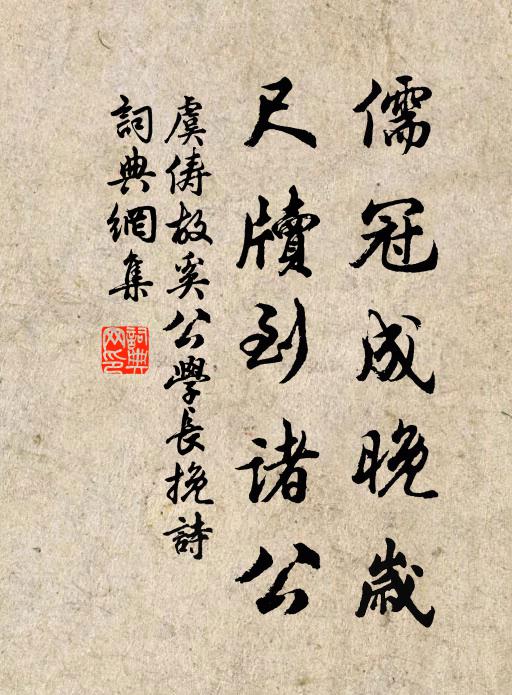 儒冠成晚歲
尺牘到诸公
虞儔故奚公學長挽詩
詞典網集
詞典网印